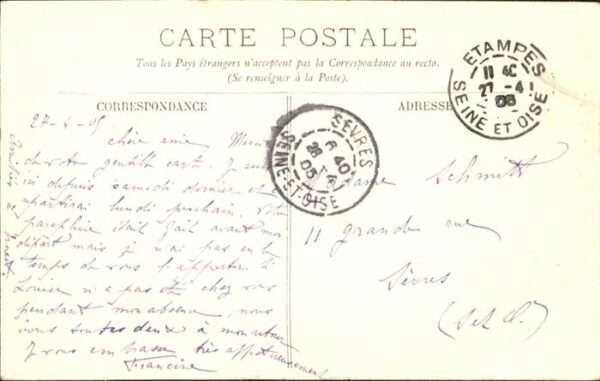 CARTE POSTALE
Tous les Pays étrangers n'acceptent pas la Correspondance au recto.
(Se renseigner à la Poste).
CORRESPONDANCE
ADRESSE
ETAMPES
11 40
27 -4
05
SEINE ET OISE
SÈVRES
6 40
28 4
05
SEINE-ET-OISE
27-4-05
chère amie Merci
de votre gentille carte. Je suis
ici depuis samedi dernier et
partirai lundi prochain. Votre
était fait avant mon
départ mais je n'ai pas eu le
temps de vous l'apporter. Si
Louise n'a pas été chez vous
pendant mon absence, nous
irons toutes deux à mon retour
Je vous embrasse très affectueusement
Francine
Madame Schmitt
11 grande rue
Sèvres
(S et O.)